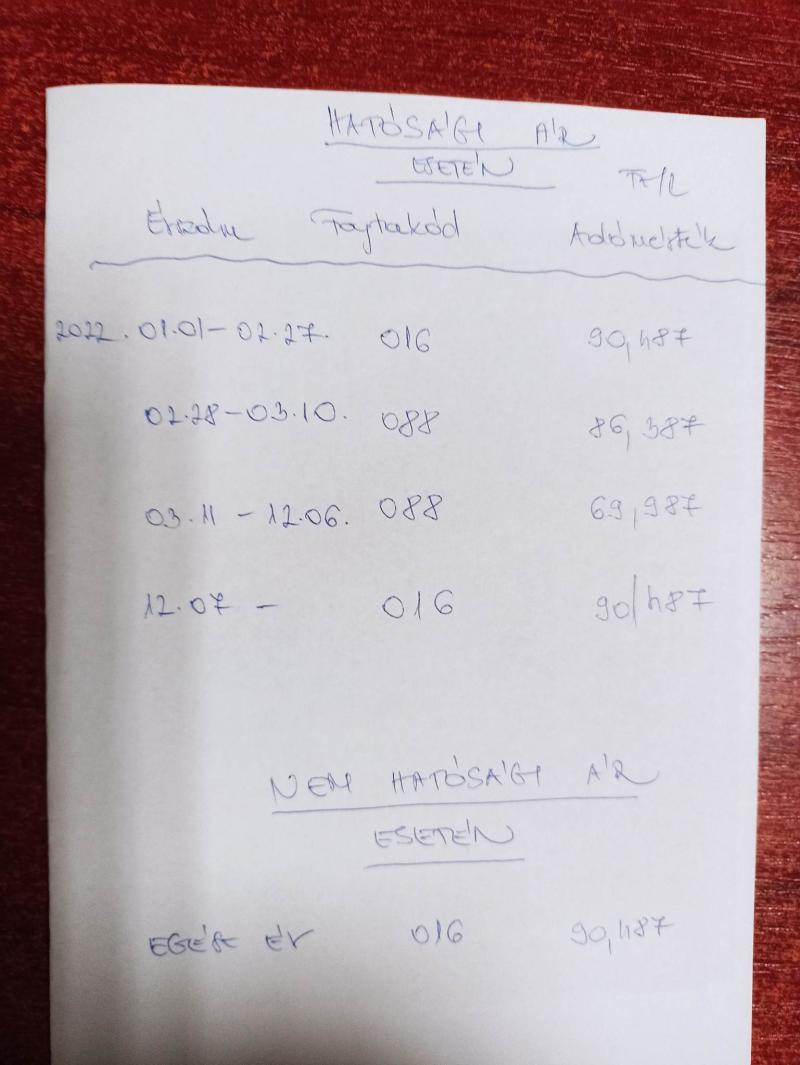 HATÓSÁGI ÁR
ESETÉN
Ft/L
Érkezés Fajtakód Adómérték
2022. 01.01 – 02.27. 016 90,487
02.28 – 03.10. 088 86,387
03.11 – 12.06. 088 69,987
12.07 – 016 90,487
NEM HATÓSÁGI ÁR
ESETÉN
EGÉSZ ÉV 016 90,487